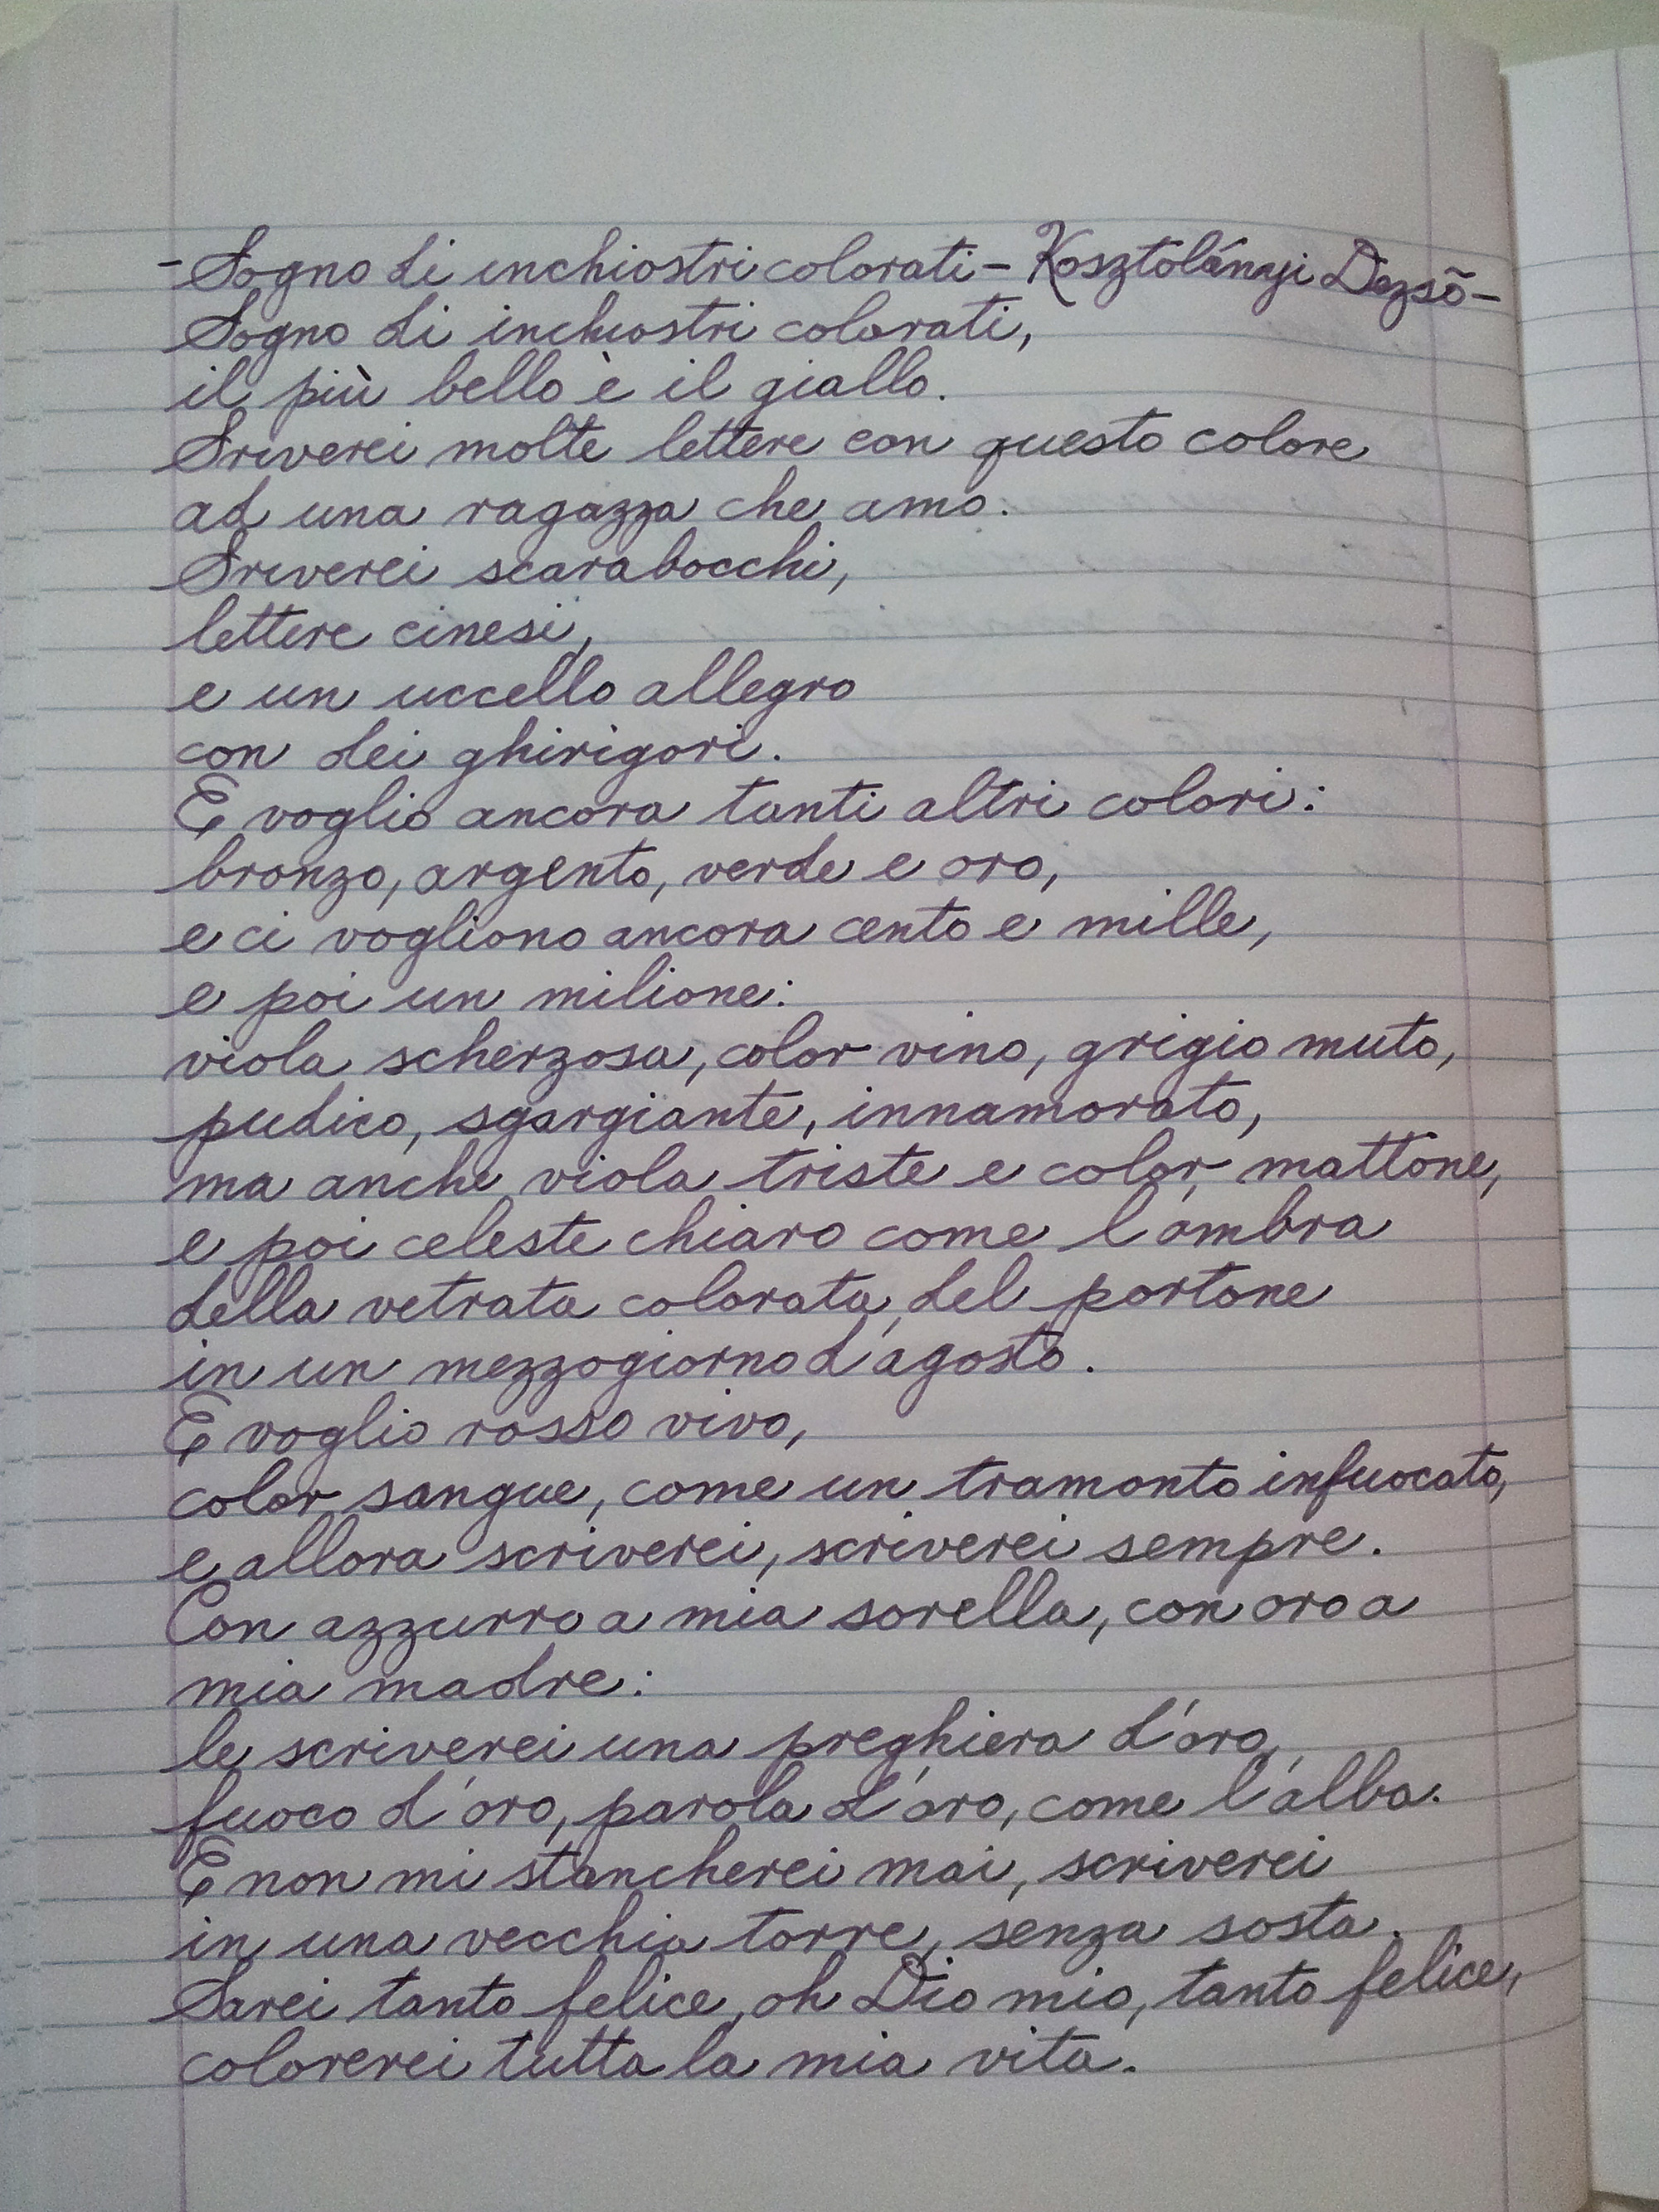 -Sogno di inchiostri colorati- Kosztolányi Dezsõ-
Sogno di inchiostri colorati,
il più bello è il giallo.
Sriverei molte lettere con questo colore
ad una ragazza che amo.
Sriverei scarabocchi,
lettere cinesi,
e un uccello allegro
con dei ghirigori.
E voglio ancora tanti altri colori:
bronzo, argento, verde e oro,
e ci vogliono ancora cento e mille,
e poi un milione:
viola scherzosa, color vino, grigio muto,
pudico, sgargiante, innamorato,
ma anche viola triste e color mattone,
e poi celeste chiaro come l'ombra
della vetrata colorata del portone
in un mezzogiorno d'agosto.
E voglio rosso vivo,
color sangue, come un tramonto infuocato,
e allora scriverei, scriverei sempre.
Con azzurro a mia sorella, con oro a
mia madre:
le scriverei una preghiera d'oro,
fuoco d'oro, parola d'oro, come l'alba.
E non mi stancherei mai, scriverei
in una vecchia torre, senza sosta.
Sarei tanto felice, oh Dio mio, tanto felice,
colorerei tutta la mia vita.